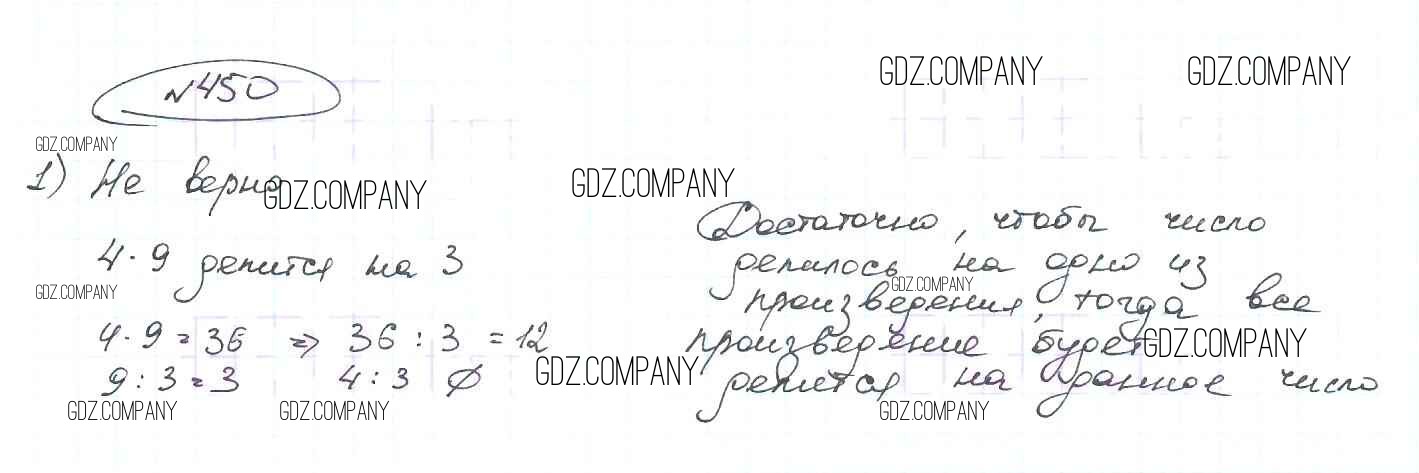 №450
GDZ.COMPANY GDZ.COMPANY
GDZ.COMPANY
1) Не верно
GDZ.COMPANY GDZ.COMPANY
Достаточно, чтобы число
4·9 делится на 3
делилось на одно из
GDZ.COMPANY GDZ.COMPANY
произведения, тогда все
4·9=36 => 36:3=12
произведение будет
GDZ.COMPANY GDZ.COMPANY
9:3=3 4:3 ∅
делится на данное число
GDZ.COMPANY GDZ.COMPANY GDZ.COMPANY